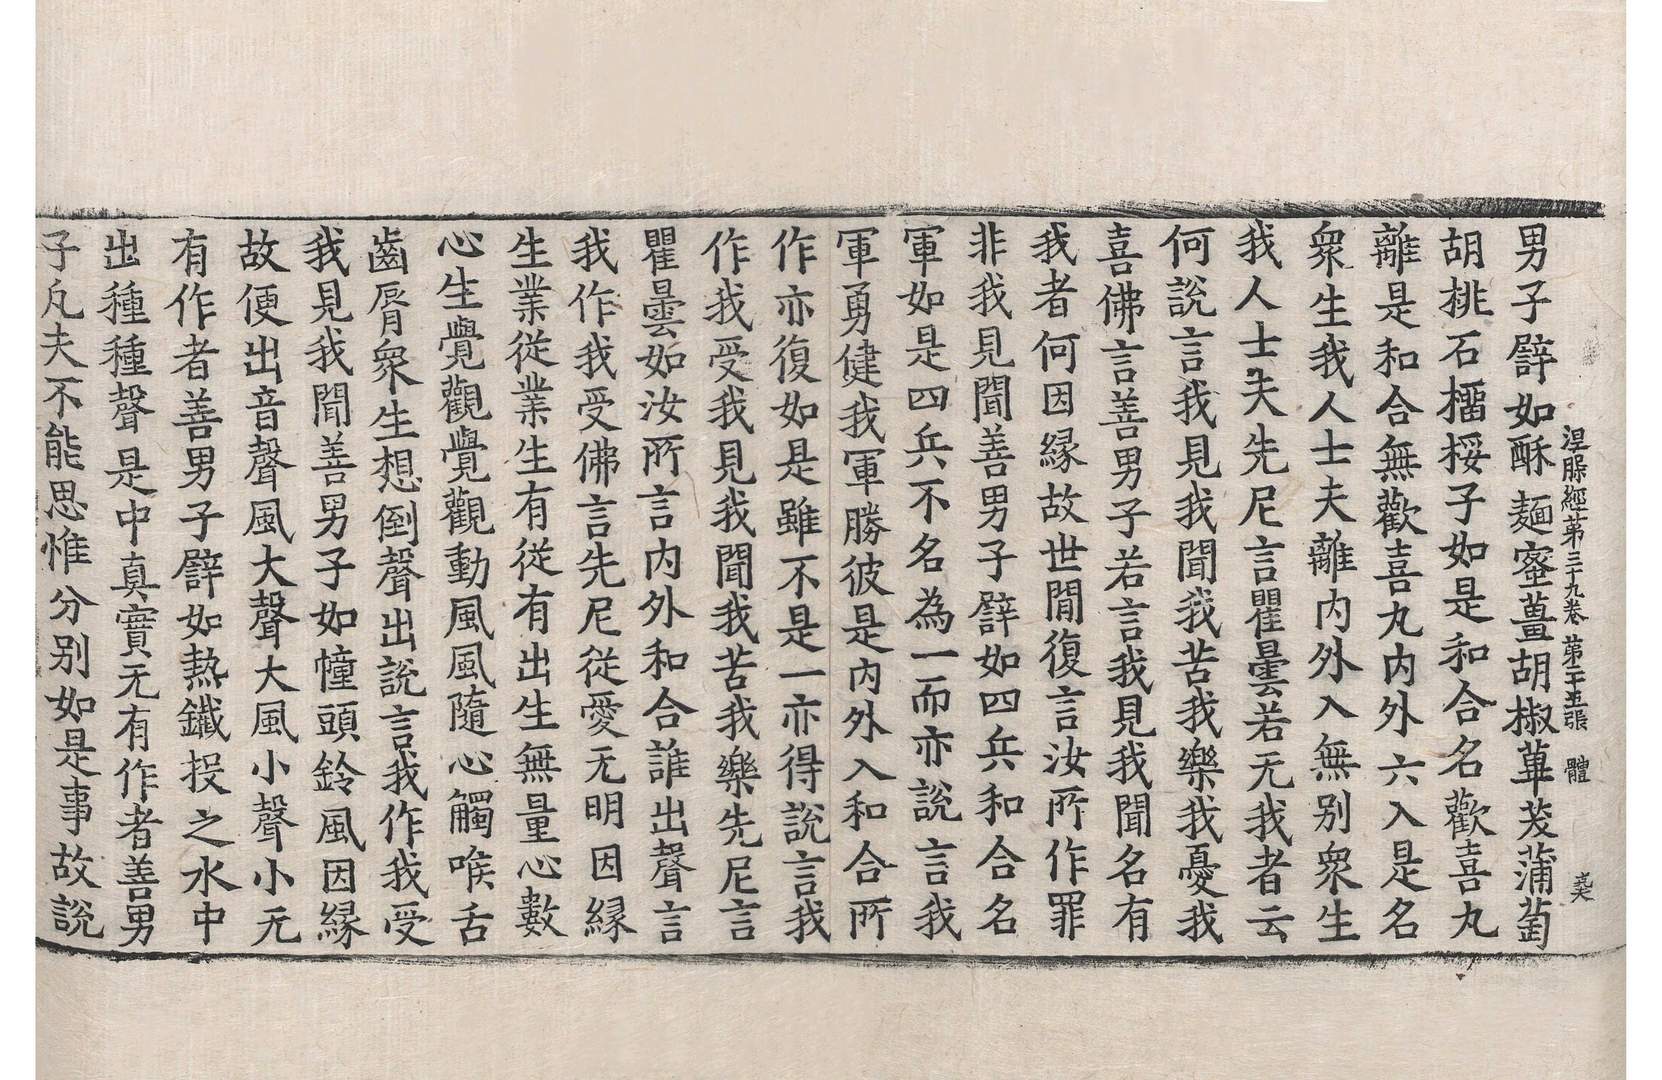 涅槃經第三十九卷 第二十五張 體
男子譬如酥麺蜜薑胡椒蓽茇蒲萄
胡桃石橊桵子如是和合名歡喜丸
離是和合無歡喜丸內外六入是名
衆生我人士夫離內外入無別衆生
我人士夫先尼言瞿曇若无我者云
何說言我見我聞我苦我樂我憂我
喜佛言善男子若言我見我聞名有
我者何因縁故世閒復言汝所作罪
非我見聞善男子譬如四兵和合名
軍如是四兵不名為一而亦說言我
軍勇健我軍勝彼是內外入和合所
作亦復如是雖不是一亦得說言我
作我受我見我聞我苦我樂先尼言
瞿曇如汝所言內外和合誰出聲言
我作我受佛言先尼従愛无明因縁
生業従業生有従有出生無量心數
心生覺觀覺觀動風風隨心觸喉舌
齒脣衆生想倒聲出說言我作我受
我見我聞善男子如幢頭鈴風因縁
故便出音聲風大聲大風小聲小无
有作者善男子譬如熱鐵投之水中
出種種聲是中真實无有作者善男
子凡夫不能思惟分別如是事故說